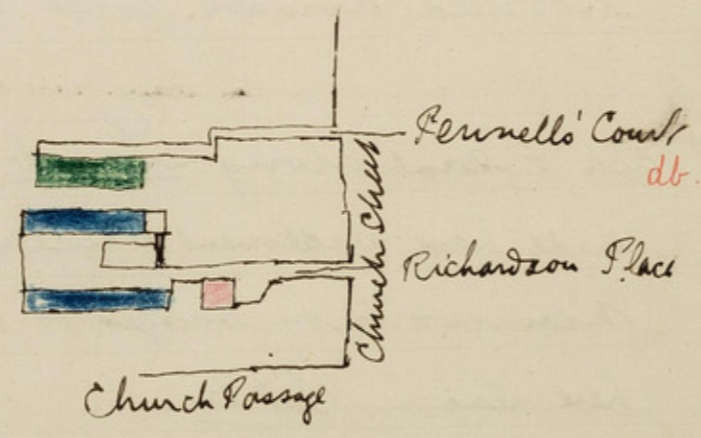 Fennells' Court
db.
Church Chas
Richardson Place
Church Passage